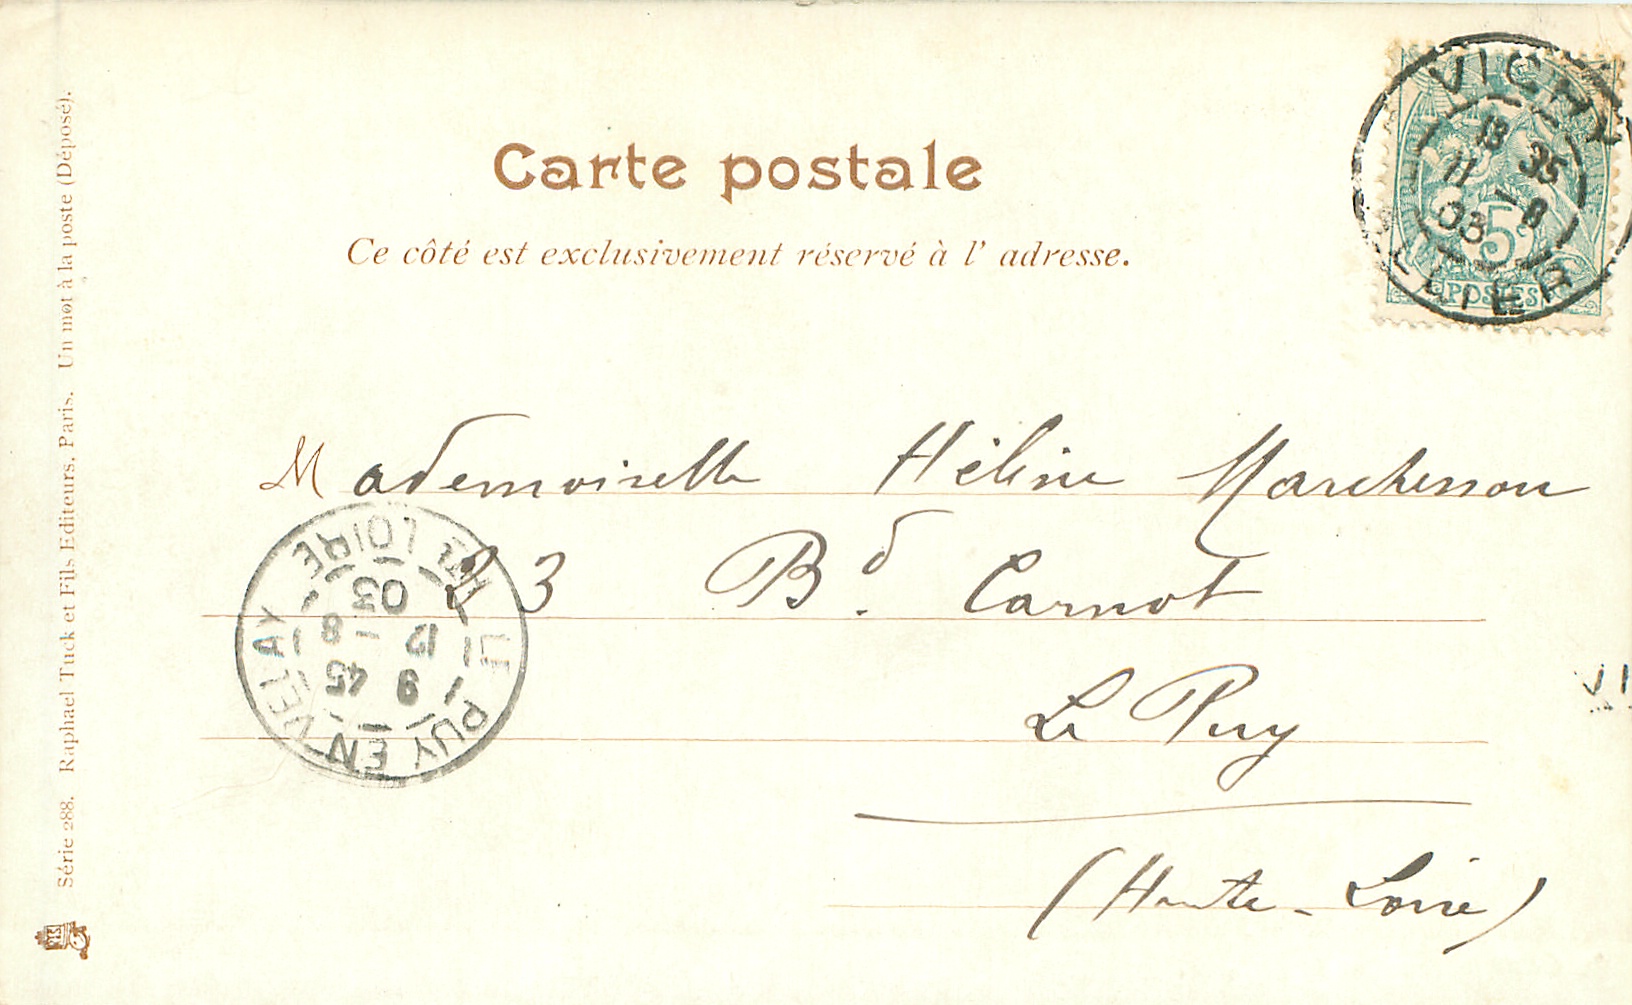 Carte postale
Ce côté est exclusivement réservé à l' adresse.
VICHY
13 35
11 - 8
03
ALLIER
5
POSTES
Mademoiselle Hélène Marchessou
23 Bd. Carnot
Le Puy
(Haute-Loire)
LE PUY EN VELAY
9 45
12 - 8
03
HTE LOIRE
Série 288. Raphael Tuck et Fils Editeurs, Paris. Un mot à la poste (Déposé).